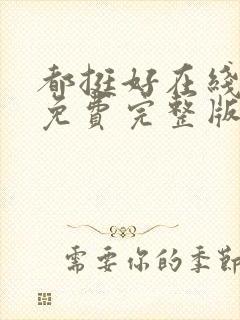 都挺好在线
免費完整版
需要你的季節